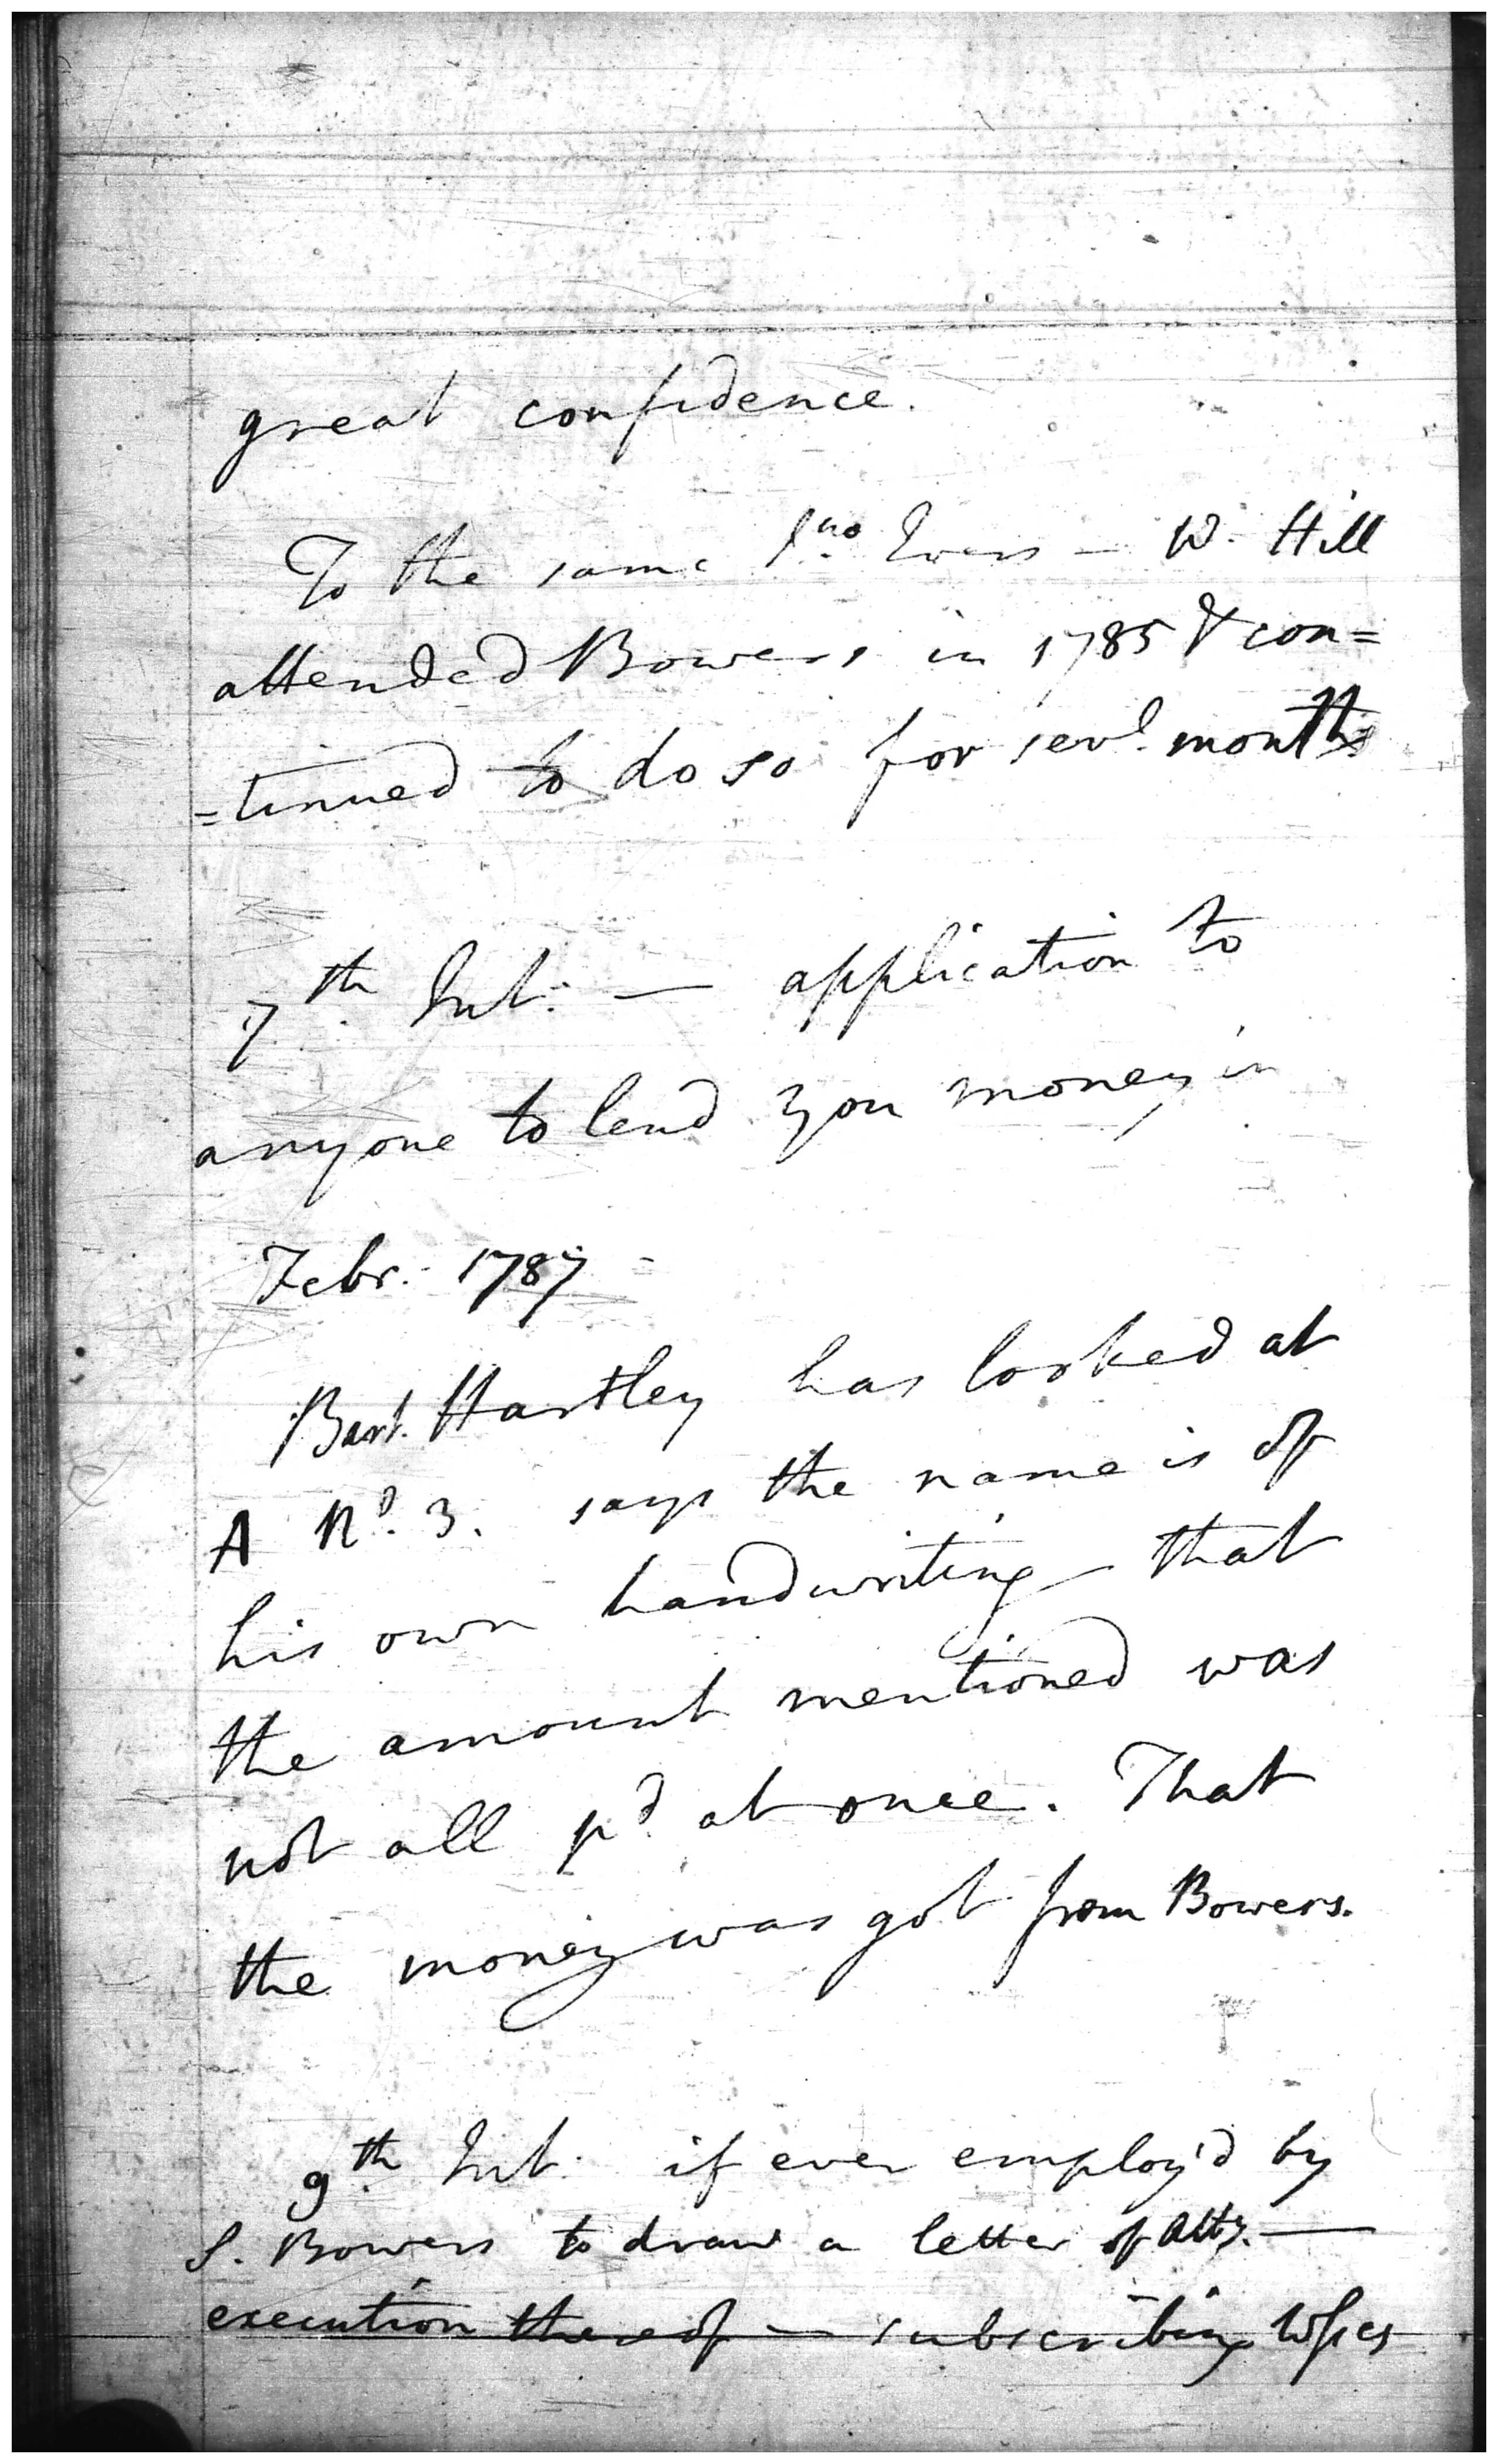 great confidence.
To the same Jno Ivers – W. Hill
attended Bowers in 1785 & con=
=tinued to do so for sevl. months
7th. Int: — application to
anyone to lend you money in
Febr. 1787
Bart. Hartley has looked at
A No. 3. says the name is of
his own handwriting – that
the amount mentioned was
not all pd. at once. That
the money was got from Bowers.
9th. Int: if ever employ'd by
S. Bowers to draw a letter of Atty. —
execution thereof – subscribing